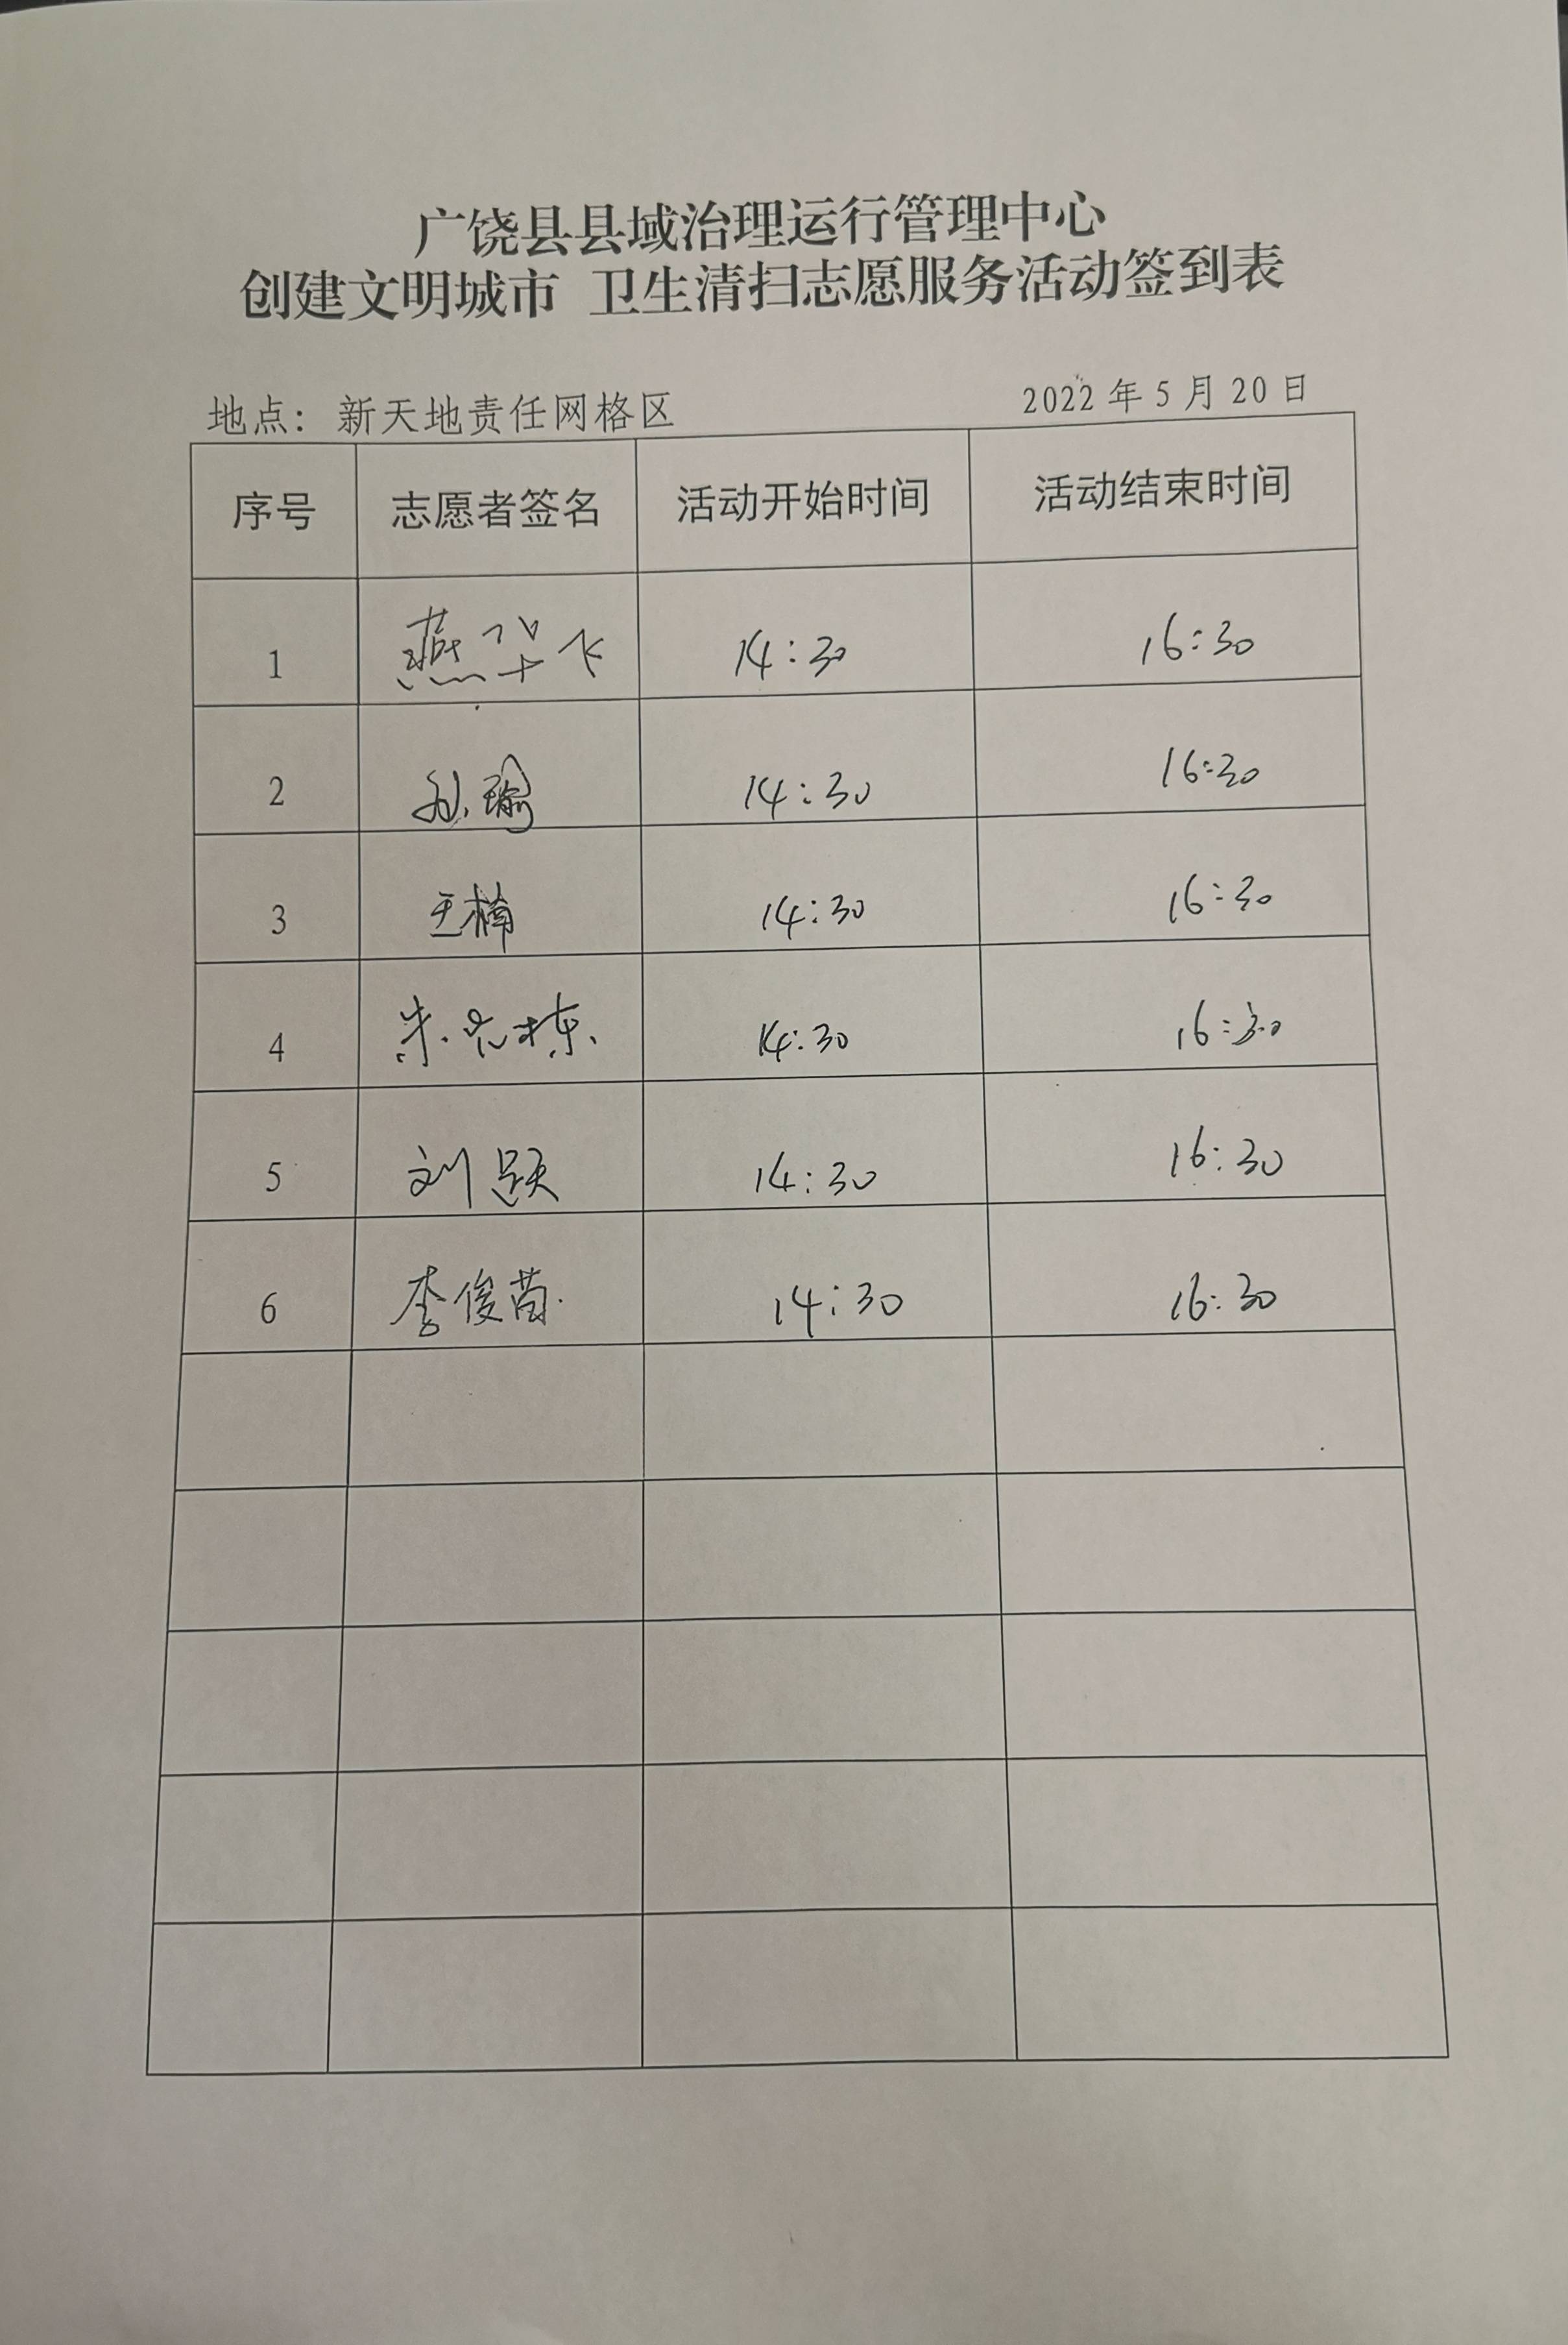 广饶县县域治理运行管理中心
创建文明城市 卫生清扫志愿服务活动签到表
地点：新天地责任网格区 2022年5月20日
序号 志愿者签名 活动开始时间 活动结束时间
1 燕华飞 14:30 16:30
2 孙瑜 14:30 16:30
3 王楠 14:30 16:30
4 朱 栋 14:30 16:30
5 刘跃 14:30 16:30
6 李俊茵 14:30 16:30